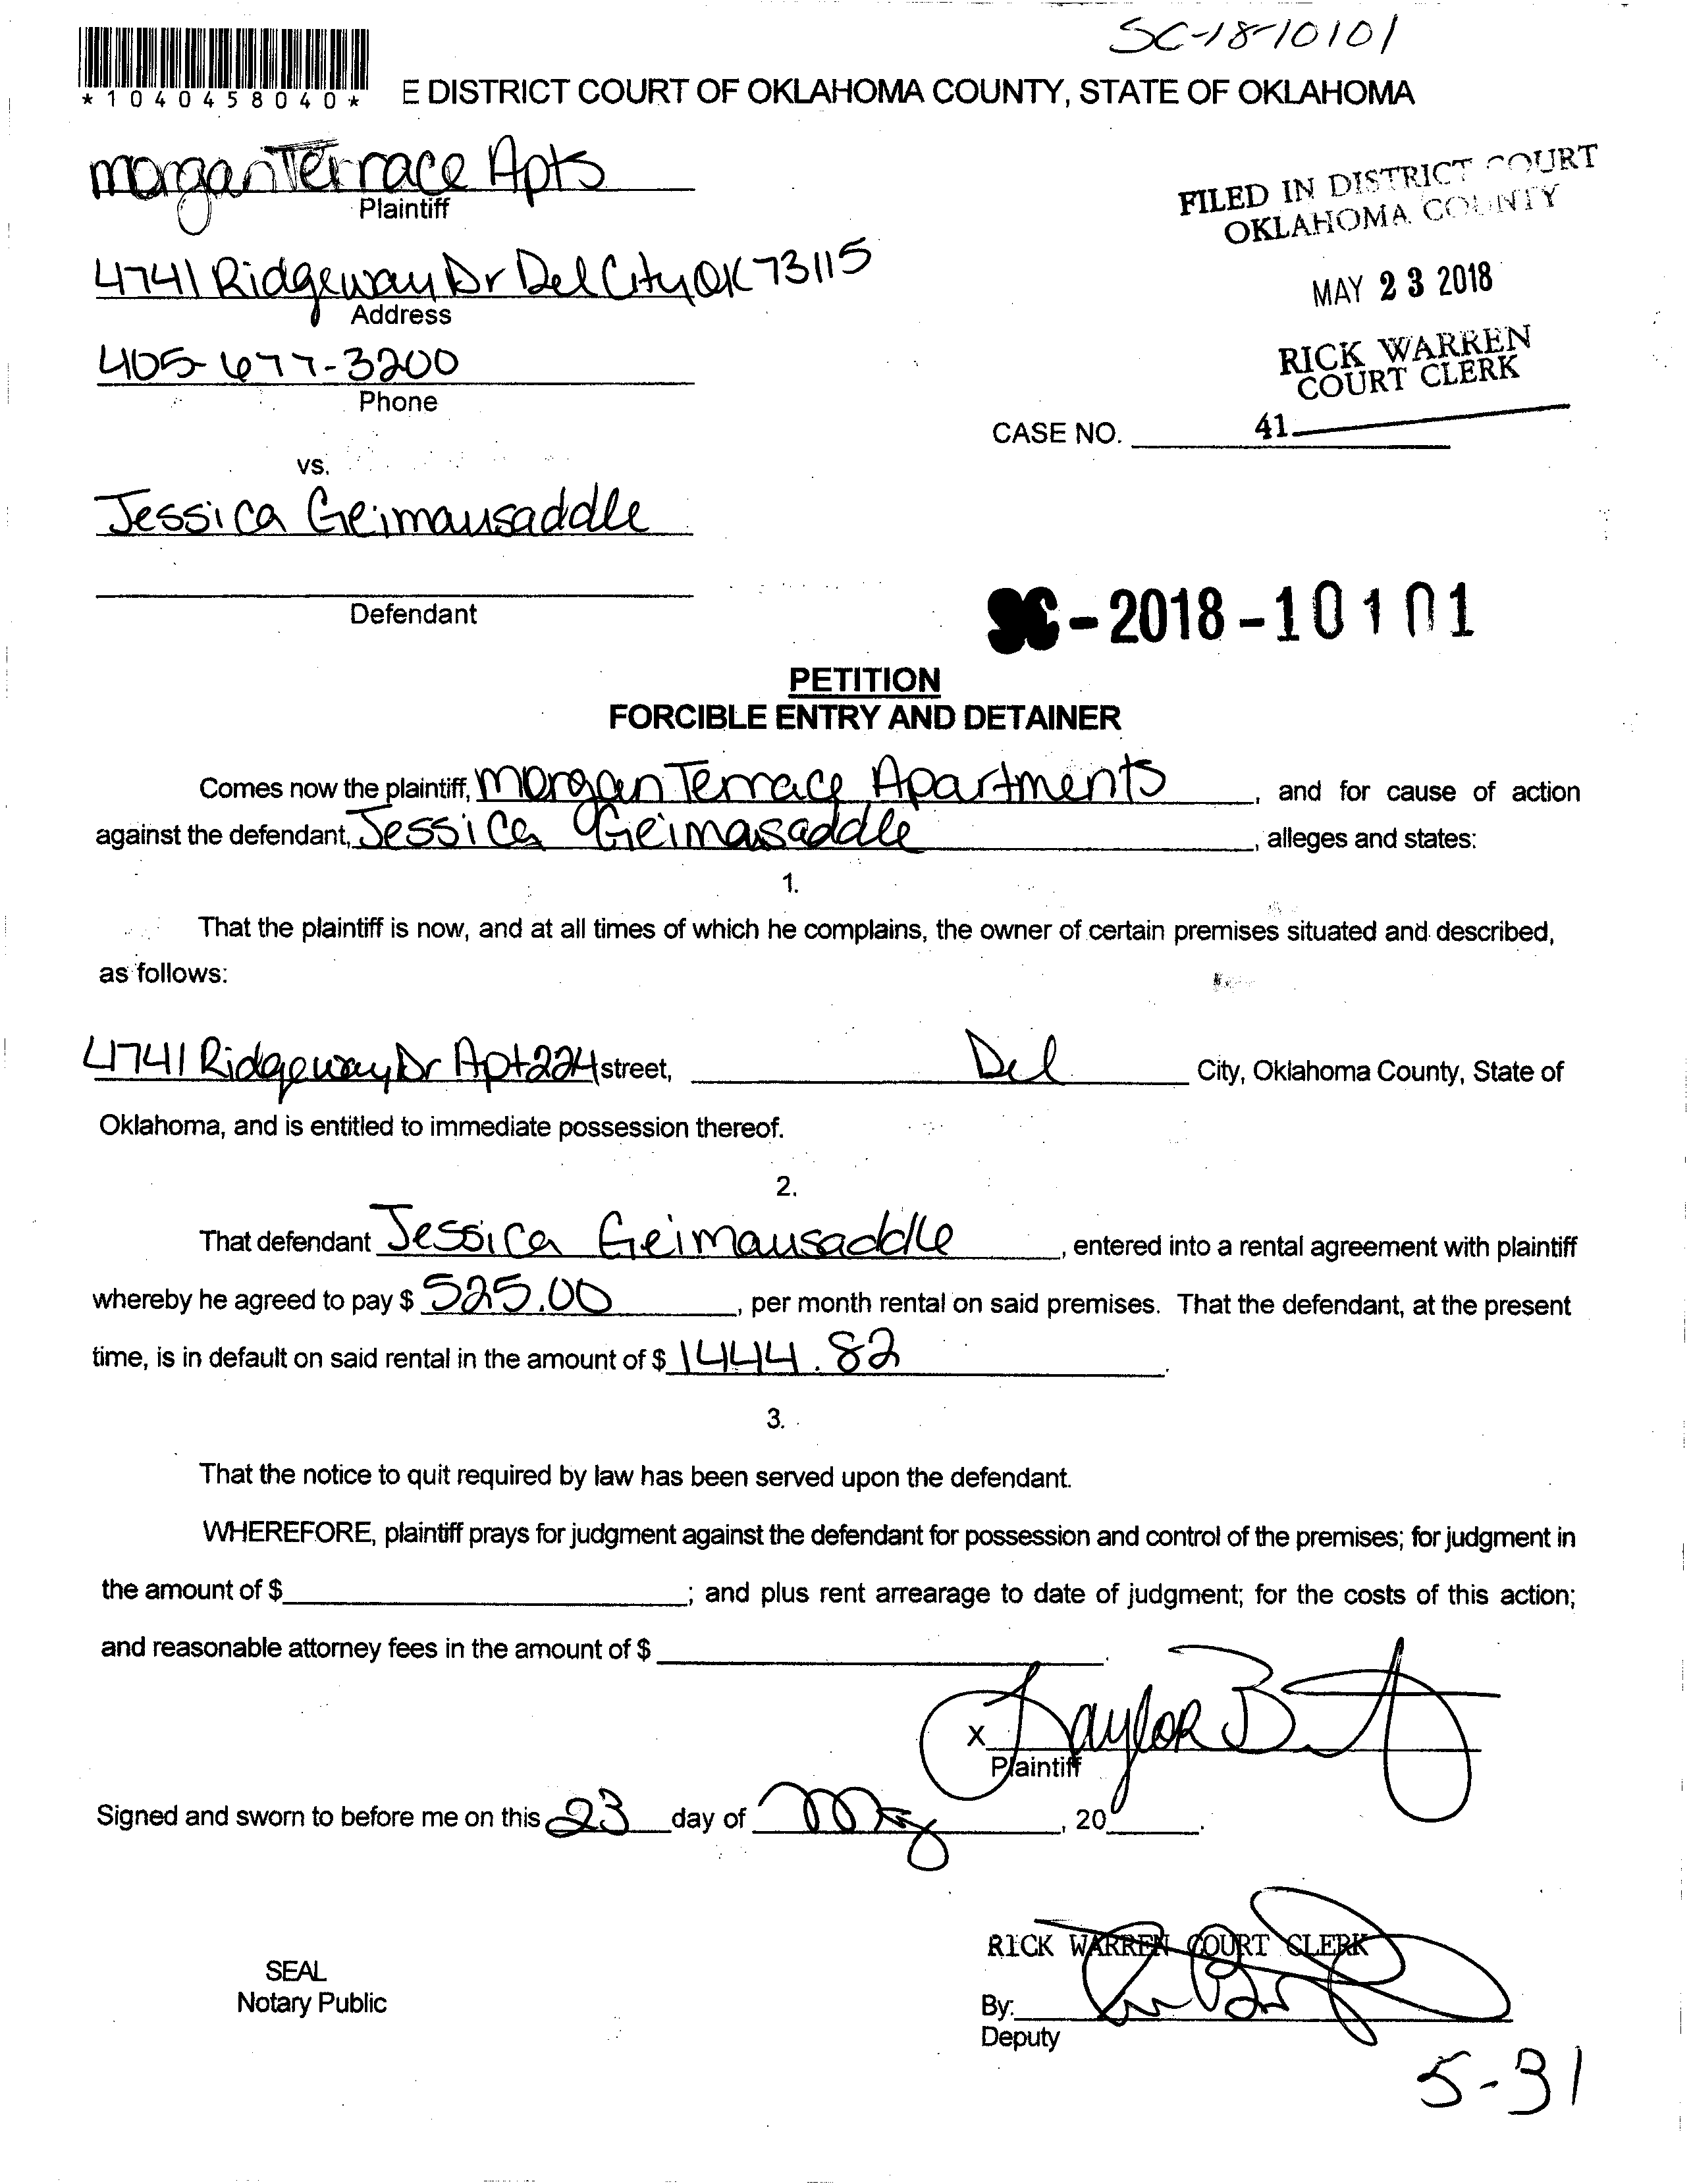 SC-18-10101
*1040458040*
E DISTRICT COURT OF OKLAHOMA COUNTY, STATE OF OKLAHOMA
Morgan Terrace Apts
Plaintiff
FILED IN DISTRICT COURT
OKLAHOMA COUNTY
4741 Ridgeway Dr Del City OK 73115
Address
MAY 23 2018
405-677-3200
Phone
RICK WARREN
COURT CLERK
CASE NO. 41
vs.
Jessica Geimausaddle
Defendant
SC-2018-10101
PETITION
FORCIBLE ENTRY AND DETAINER
Comes now the plaintiff, Morgan Terrace Apartments, and for cause of action
against the defendant, Jessica Geimasaddle, alleges and states:
1.
That the plaintiff is now, and at all times of which he complains, the owner of certain premises situated and described,
as follows:
4741 Ridgeway Dr Apt 224 street, Del City, Oklahoma County, State of
Oklahoma, and is entitled to immediate possession thereof.
2.
That defendant Jessica Geimausaddle, entered into a rental agreement with plaintiff
whereby he agreed to pay $ 525.00, per month rental on said premises. That the defendant, at the present
time, is in default on said rental in the amount of $ 1444.82.
3.
That the notice to quit required by law has been served upon the defendant.
WHEREFORE, plaintiff prays for judgment against the defendant for possession and control of the premises; for judgment in
the amount of $ ; and plus rent arrearage to date of judgment; for the costs of this action;
and reasonable attorney fees in the amount of $ .
X Taylor
Plaintiff
Signed and sworn to before me on this 23 day of May, 20 .
RICK WARREN COURT CLERK
SEAL
Notary Public
By:
Deputy
5-31